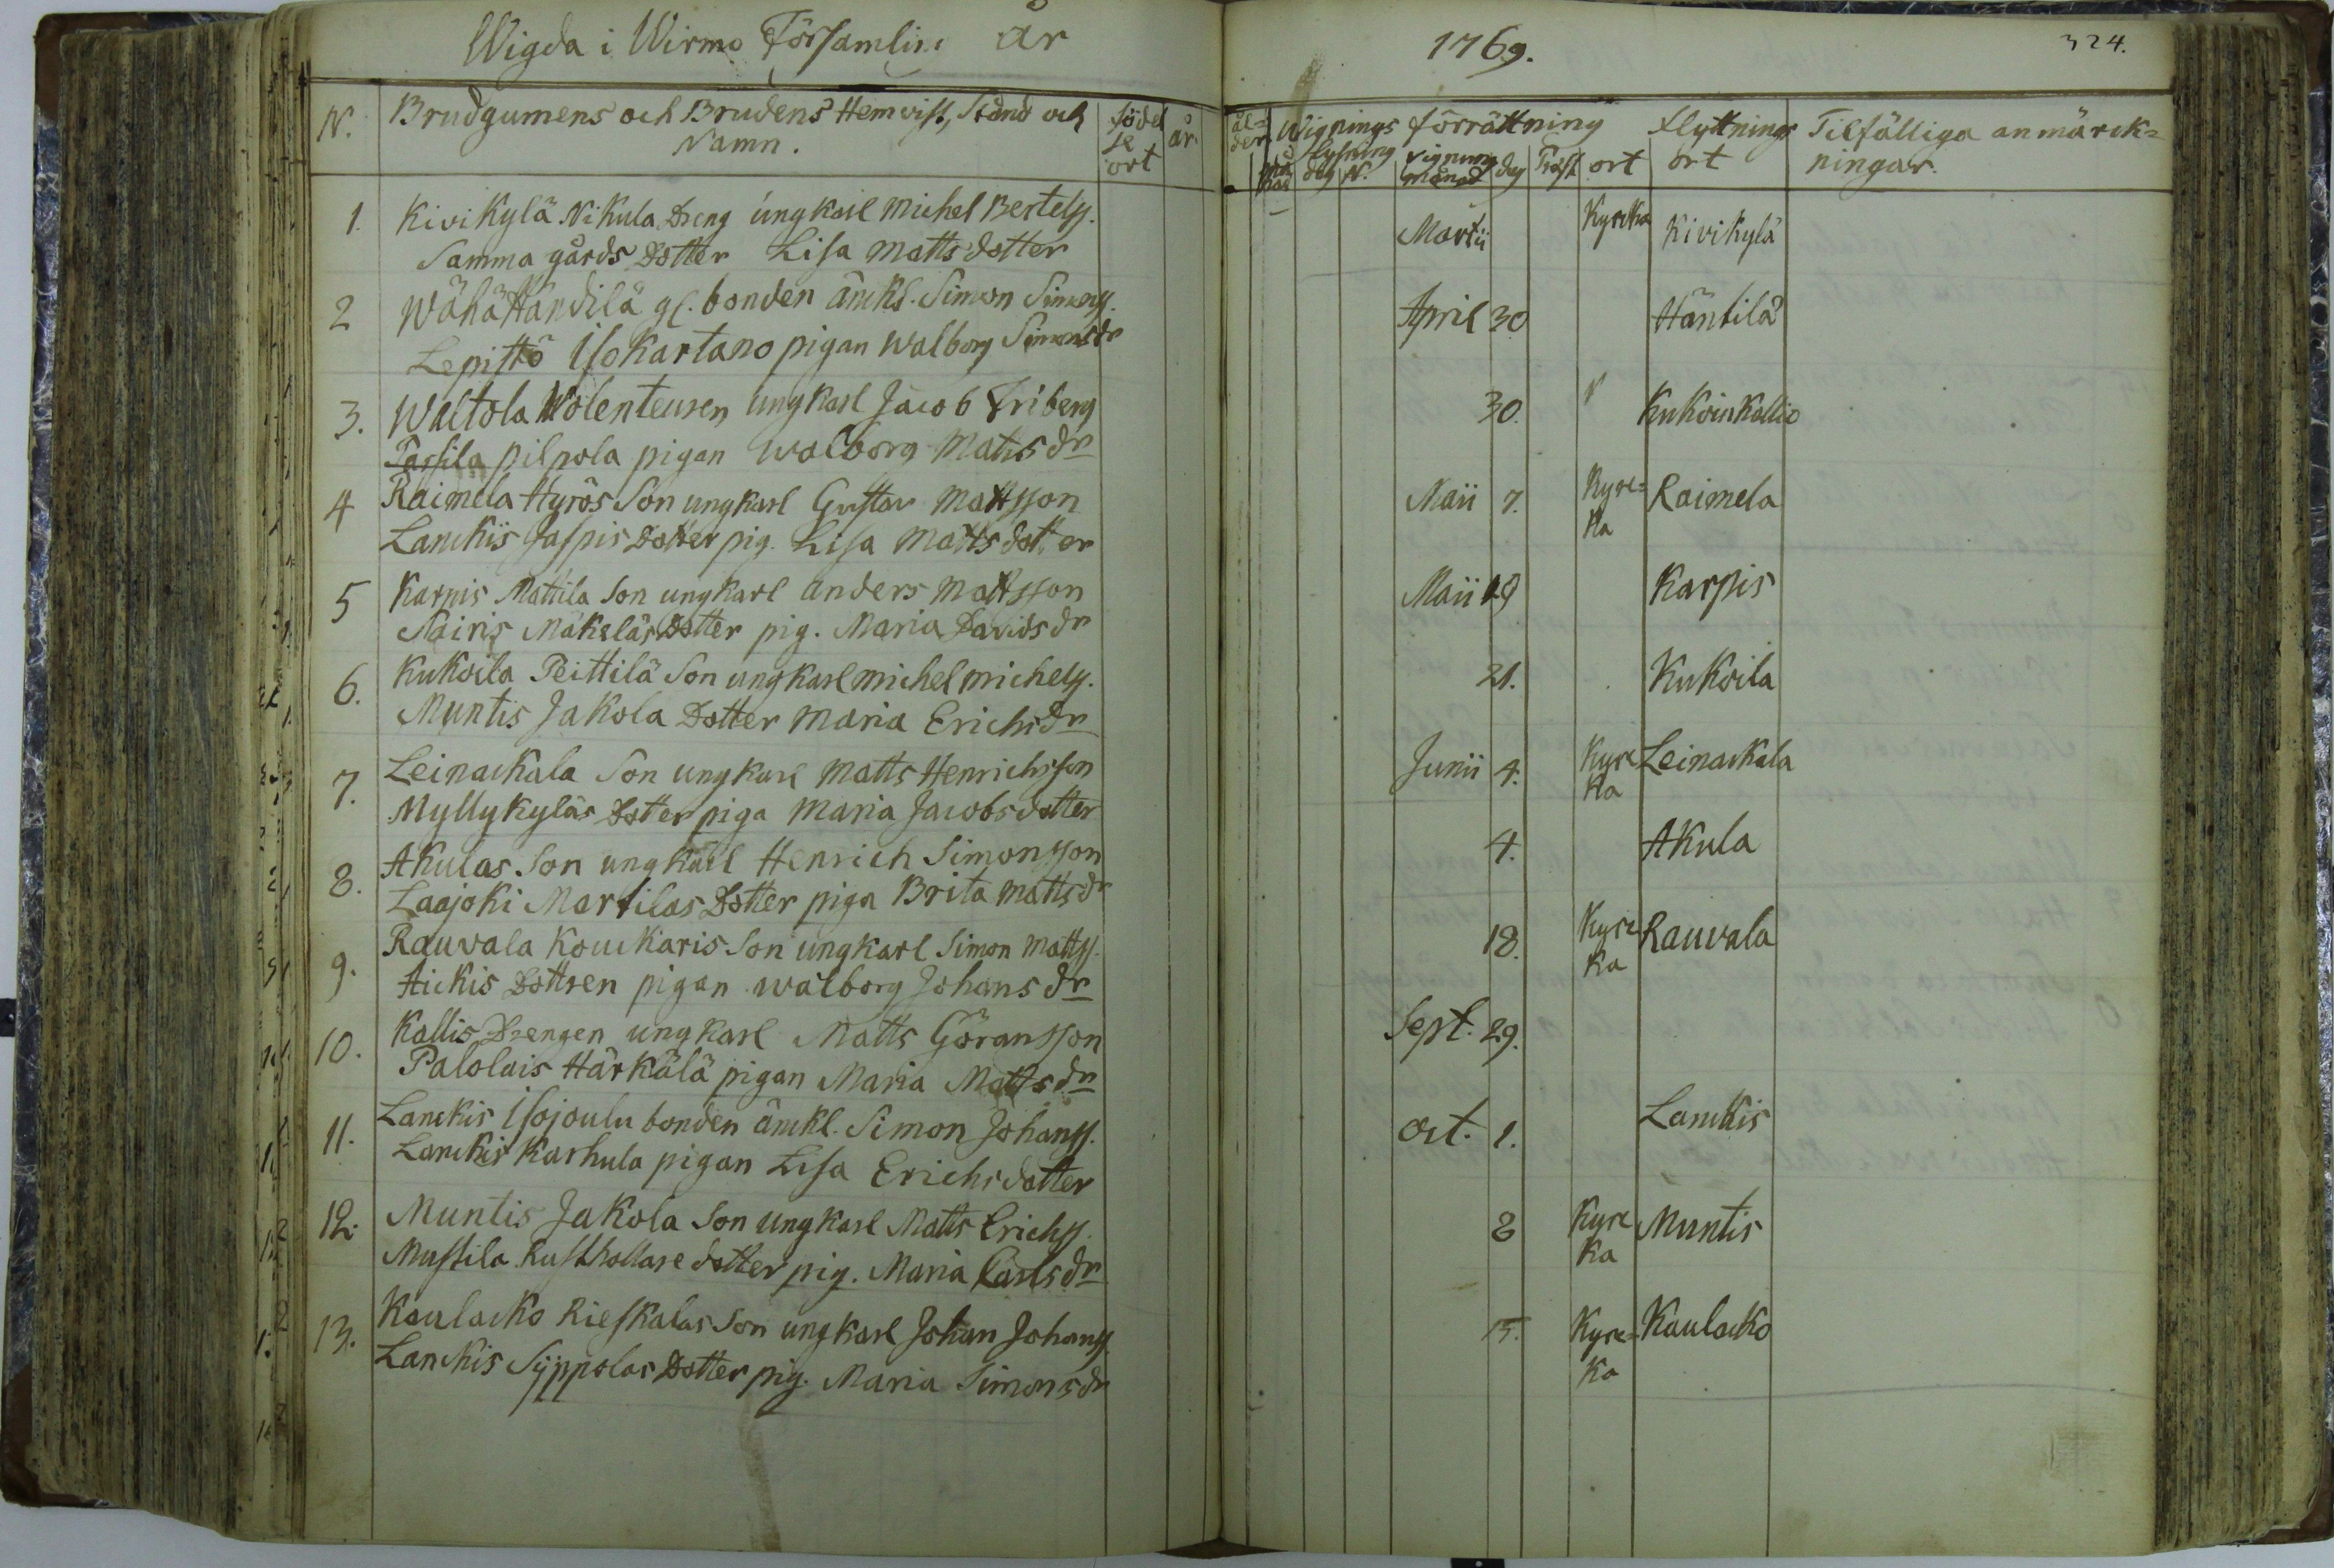 Wigda i Wirmo Församlin: år 1769. 324.
N. Brudgumens och Brudens Hemvist, Stånd och
Namn.
födel
se
ort
år
ål=
der
Wignings förrättning
Lysning
dag N.
vigning
månad
dag Präst ort
Flyttnings
ort
Tilfälliga anmärck=
ningar.
1. Kivikylä Nikula Dreng ungkarl Michel Bertelss. Martii Kyrcka Kivikylä
Samma gårds Dotter Lisa Mattsdotter
2 Wähä Händilä gl. bonden änckl. Simon Simonss. April 30 Häntilä
Lepistö Isokartano pigan Walborg Simonsdr
3. Waltola Wolenteuren ungkarl Jacob Friberg 30. Kukoinkallio
Tassila Pilpola pigan Walborg Mattsdr
4 Raimela Hyrös Son ungkarl Gustav Mattsson Maii 7. Kyrc=
ka Raimela
Lanckis Jaspis Dotter pig. Lisa Mattsdotter
5 Karpis Mattila Son ungkarl Anders Mattsson Maii 19 Karpis
Nairis Mäkeläs Dotter pig. Maria Davidsdr
6. Kukoila Peittilä Son ungkarl Michel Michelss. 21. Kukoila
Muntis Jakola Dotter Maria Erichsdr
7. Leinackala Son ungkarl Matts Henrichsson Junii 4. Kyrc
ka Leinackala
Myllykyläs Dotter piga Maria Jacobsdotter
8. Akulas Son ungkarl Henrich Simonsson 4. Akula
Laajoki Martilas Dotter piga Brita Mattsdr
9. Rauvala Kouckaris Son ungkarl Simon Mattss. 18. Kyrc
ka Rauvala
Aickis Dottren pigan Walborg Johansdr
10. Kallis Drengen ungkarl Matts Göransson Sept. 29.
Palolais Härkälä pigan Maria Mattsdr
11. Lanckis Isojoulu bonden änckl. Simon Johanss. Oct. 1. Lanckis
Lanckis Karhula pigan Lisa Erichsdotter
12. Muntis Jakola Son ungkarl Matts Erichss. 8 Kyrc
ka Muntis
Mustila Rusthollare dotter pig. Maria Carlsdr
13. Kaulacko Rieskalas Son ungkarl Johan Johanss. 15. Kyrc=
ka Kaulacko
Lanckis Syppolas Dotter pig. Maria Simonsdr